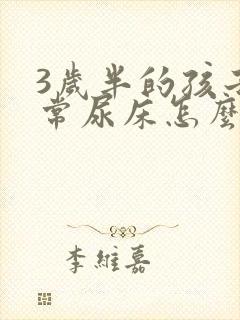 3歲半的孩子
常尿床怎麼
李維嘉